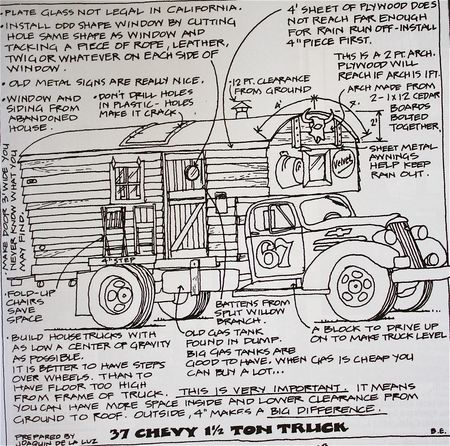 • PLATE GLASS NOT LEGAL IN CALIFORNIA.
• INSTALL ODD SHAPE WINDOW BY CUTTING
HOLE SAME SHAPE AS WINDOW AND
TACKING A PIECE OF ROPE, LEATHER,
TWIG OR WHATEVER ON EACH SIDE OF
WINDOW.
• OLD METAL SIGNS ARE REALLY NICE.
• WINDOW AND
SIDING FROM
ABANDONED
HOUSE.
• DON'T DRILL HOLES
IN PLASTIC - HOLES
MAKE IT CRACK.
4' SHEET OF PLYWOOD DOES
NOT REACH FAR ENOUGH
FOR RAIN RUN OFF - INSTALL
4" PIECE FIRST.
12 FT. CLEARANCE
FROM GROUND
THIS IS A 2 FT. ARCH.
PLYWOOD WILL
REACH IF ARCH IS 1 FT.
ARCH MADE FROM
2 - 1 x 12 CEDAR
BOARDS
BOLTED
TOGETHER.
4'
2'
SHEET METAL
AWNINGS
HELP KEEP
RAIN OUT.
Velvet
67
MAKE DOOR 3' WIDE YOU
NEVER KNOW WHAT YOU
MAY FIND.
4" STEP
• FOLD-UP
CHAIRS
SAVE
SPACE
BATTENS FROM
SPLIT WILLOW
BRANCH.
• OLD GAS TANK
FOUND IN DUMP.
BIG GAS TANKS ARE
GOOD TO HAVE. WHEN GAS IS CHEAP YOU
CAN BUY A LOT...
A BLOCK TO DRIVE UP
ON TO MAKE TRUCK LEVEL
• BUILD HOUSETRUCKS WITH
AS LOW A CENTER OF GRAVITY
AS POSSIBLE.
IT IS BETTER TO HAVE STEPS
OVER WHEELS. THAN TO
HAVE FLOOR TOO HIGH
FROM FRAME OF TRUCK. THIS IS VERY IMPORTANT. IT MEANS
YOU CAN HAVE MORE SPACE INSIDE AND LOWER CLEARANCE FROM
GROUND TO ROOF. OUTSIDE, 4" MAKES A BIG DIFFERENCE.
PREPARED BY
JOAQUIN DE LA LUZ
37 CHEVY 1½ TON TRUCK
B.E.